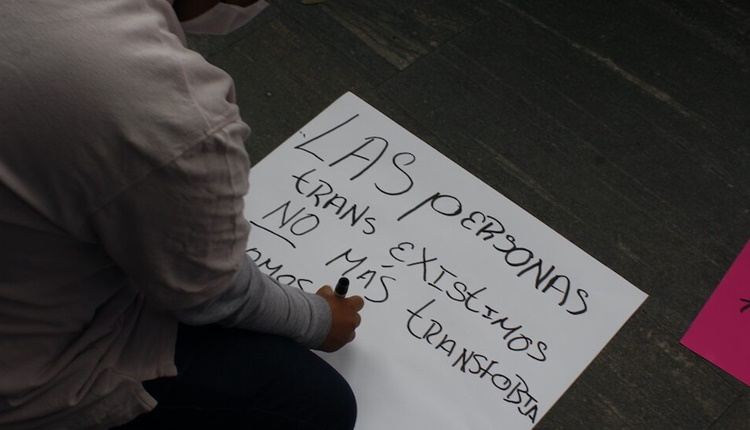 LAS PERSONAS
trans existimos
NO MÁS transfobia